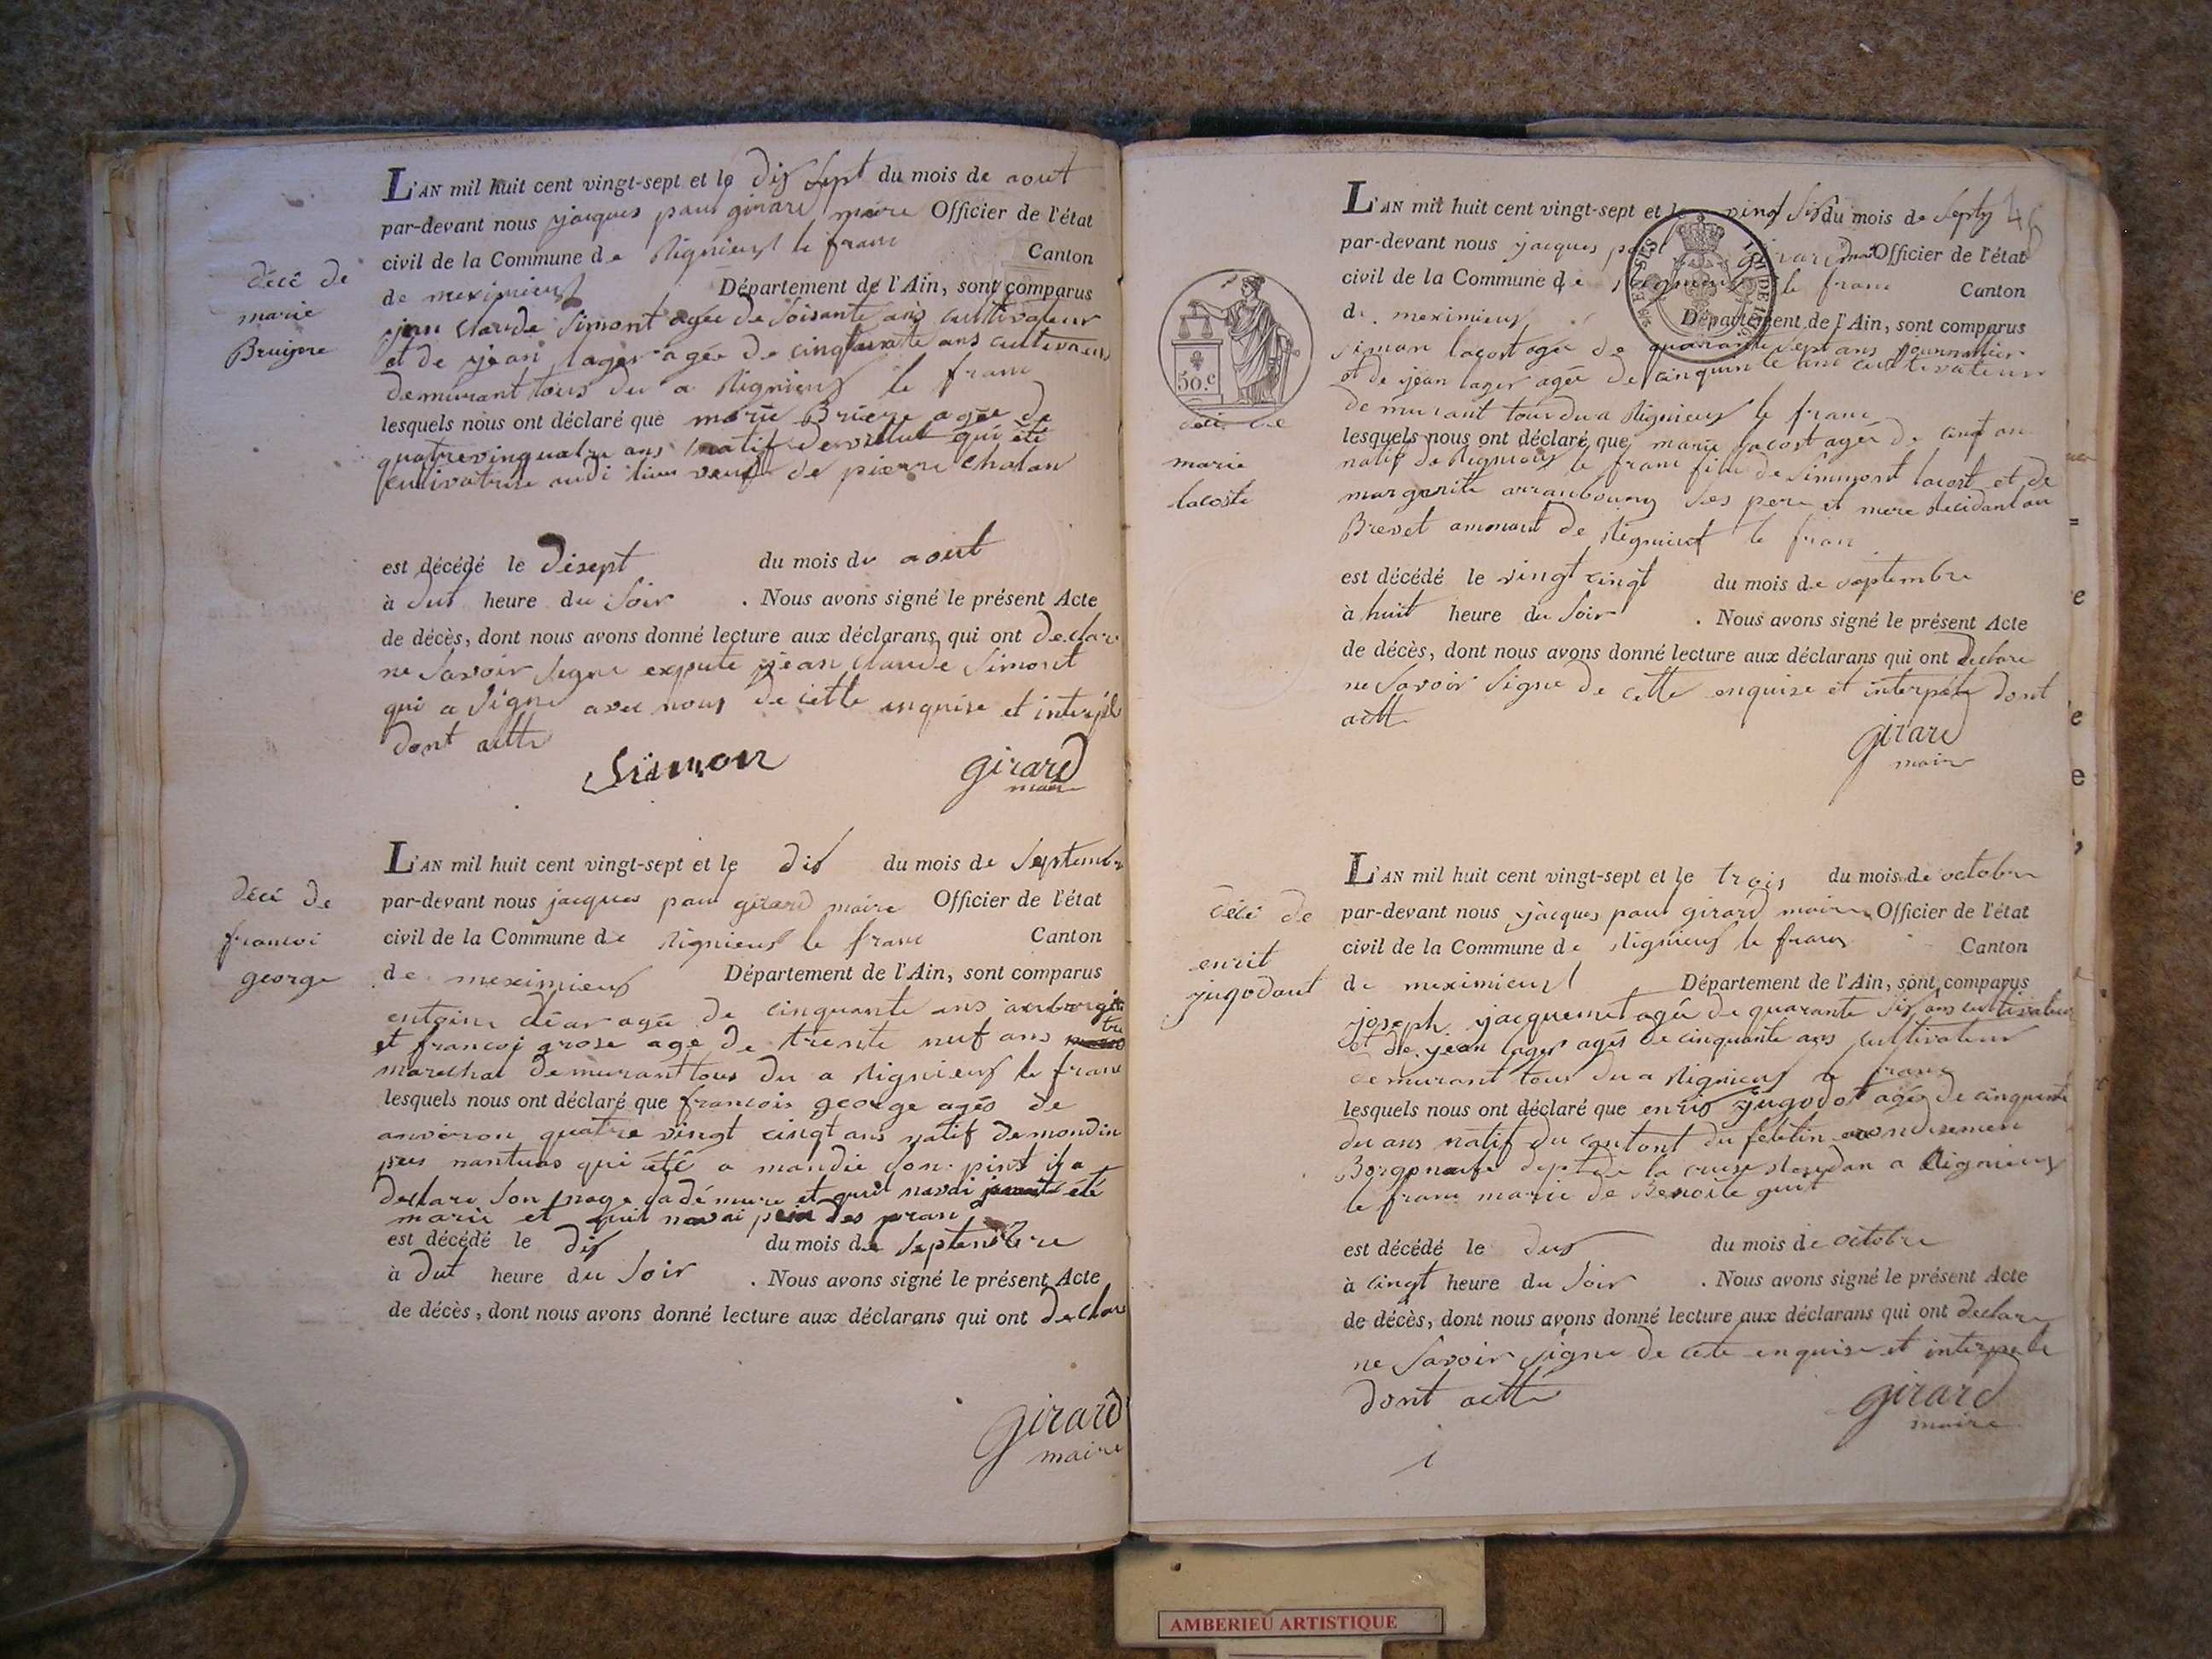 L'AN mil huit cent vingt-sept et le dis sept du mois de aout
par-devant nous jacques paul girard maire Officier de l'état
civil de la Commune de Rignieux le franc Canton
de meximieux Département de l'Ain, sont comparus
jean claude Simont agée de soisante ans cultivateur
et de jean lager agée de cinquante ans cultivateur
demurant tous du a Rignieux le franc
lesquels nous ont déclaré que marie Briere agée de
quatrevingquatre ans natif de qui été
cultivatrise audi lieu veuf de pierre chalan
est décédé le disept du mois de aout
à heure du soir . Nous avons signé le présent Acte
de décès, dont nous avons donné lecture aux déclarans qui ont declare
ne savoir signe jean claude Simont
qui a signé avec nous de cette enquise et interpélé
dont actte
Simon girard
maire
décé de
marie
Bruyere
L'AN mil huit cent vingt-sept et le dis du mois de septembre
par-devant nous jacques paul girard maire Officier de l'état
civil de la Commune de Rignieux le franc Canton
de meximieux Département de l'Ain, sont comparus
entoine agée de cinquante ans
et francoi grose age de trente neuf ans
marechal demurant tous du a Rignieux le franc
lesquels nous ont déclaré que francois george agés de
anviron quatre vingt cingt ans natif de mondin
pres nantuas qui été a mandie son pint il a
declare son sa demure et quil navai jamait été
marie et quil navai des
est décédé le dis du mois de septembre
à heure du soir . Nous avons signé le présent Acte
de décès, dont nous avons donné lecture aux déclarans qui ont declare
girard
maire
décé de
francoi
george
L'AN mil huit cent vingt-sept et le vingt sis du mois de 46
par-devant nous jacques paul girard Officier de l'état
civil de la Commune de Rignieux le franc Canton
de meximieux Département de l'Ain, sont comparus
simon lacost agée de quarante sept ans journalier
et de jean lager agée de cinquante ans cultivateur
demurant tous du a Rignieux le franc
lesquels nous ont déclaré que marie lacost agée de cinq an
natif de Rignieux le franc fille de Simmont lacost et de
margerite arranbourg ses pere et mere residant au
Brevet ammaut de Rignieux le franc
est décédé le vingt cingt du mois de septembre
à huit heure du soir . Nous avons signé le présent Acte
de décès, dont nous avons donné lecture aux déclarans qui ont declare
ne savoir signe de cette enquise et interpéle dont
actte
girard
maire
50.c
décé de
marie
lacoste
L'AN mil huit cent vingt-sept et le trois du mois de octobre
par-devant nous jacques paul girard maire Officier de l'état
civil de la Commune de Rignieux le franc Canton
de meximieux Département de l'Ain, sont comparus
joseph jacquemet agée de quarante sis ans cultivateur
et de jean lager agés de cinquante ans cultivateur
demurant tous du a Rignieux le franc
lesquels nous ont déclaré que enris jugodot agés de cinquente
du ans natif du cantont du feletin arondisemen
dept de la cruise a Rignieux
le franc marie de Benoite guit
est décédé le deus du mois de octobre
à cingt heure du soir . Nous avons signé le présent Acte
de décès, dont nous avons donné lecture aux déclarans qui ont declare
ne savoir signe de cete enquise et interpele
dont actte
girard
maire
décé de
enrit
jugodaut
AMBERIEU ARTISTIQUE